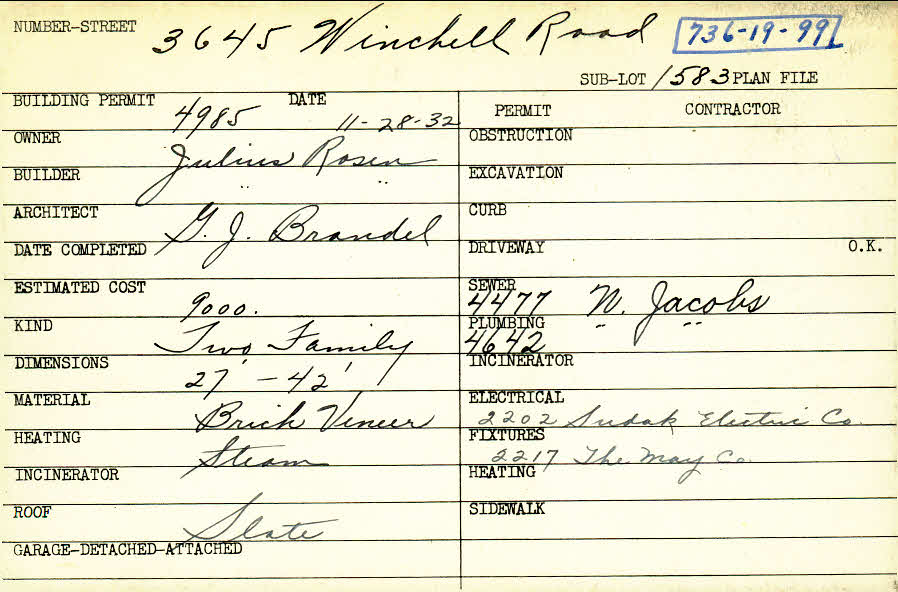 NUMBER-STREET 3645 Winchell Road 736-19-99
SUB-LOT 1583 PLAN FILE
BUILDING PERMIT 4985 DATE 11-28-32
OWNER Julius Rosen
BUILDER " "
ARCHITECT G. J. Brandel
DATE COMPLETED
ESTIMATED COST 9000.
KIND Two Family
DIMENSIONS 27' - 42'
MATERIAL Brick Veneer
HEATING Steam
INCINERATOR
ROOF Slate
GARAGE-DETACHED-ATTACHED
PERMIT CONTRACTOR
OBSTRUCTION
EXCAVATION
CURB
DRIVEWAY O.K.
SEWER 4477 N. Jacobs
PLUMBING 4642 " "
INCINERATOR
ELECTRICAL 2202 Sudak Electric Co.
FIXTURES 2217 The May Co.
HEATING
SIDEWALK